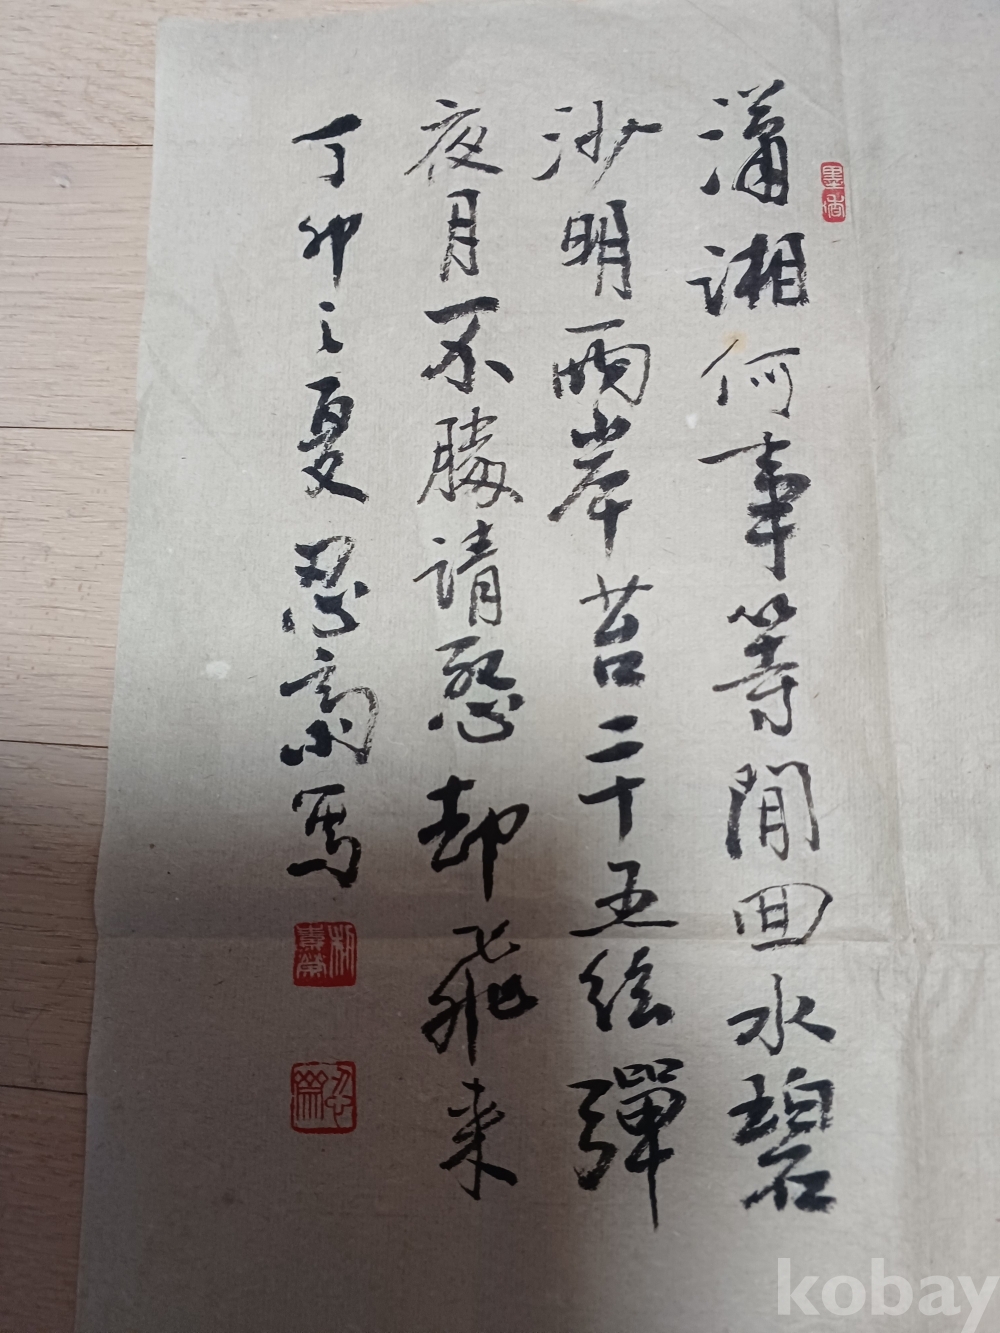 墨香
瀟湘何事等閒回水碧
沙明兩岸苔二十五絃彈
夜月不勝清怨却飛来
丁卯之夏忍齋寫
忍齋
kobay